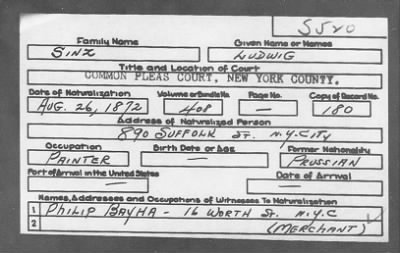 S520
Family Name Given Name or Names
SINZ LUDWIG
Title and Location of Court
COMMON PLEAS COURT, NEW YORK COUNTY.
Date of Naturalization Volume or Bundle No. Page No. Copy of Record No.
AUG. 26, 1872 408 — 180
Address of Naturalized Person
890 SUFFOLK ST. N.Y.CITY
Occupation Birth Date or Age Former Nationality
PAINTER — PRUSSIAN
Port of Arrival in the United States Date of Arrival
— —
Names, Addresses and Occupations of Witnesses To Naturalization
1 PHILIP BAYHA - 16 WORTH ST. N.Y.C
2 (MERCHANT)